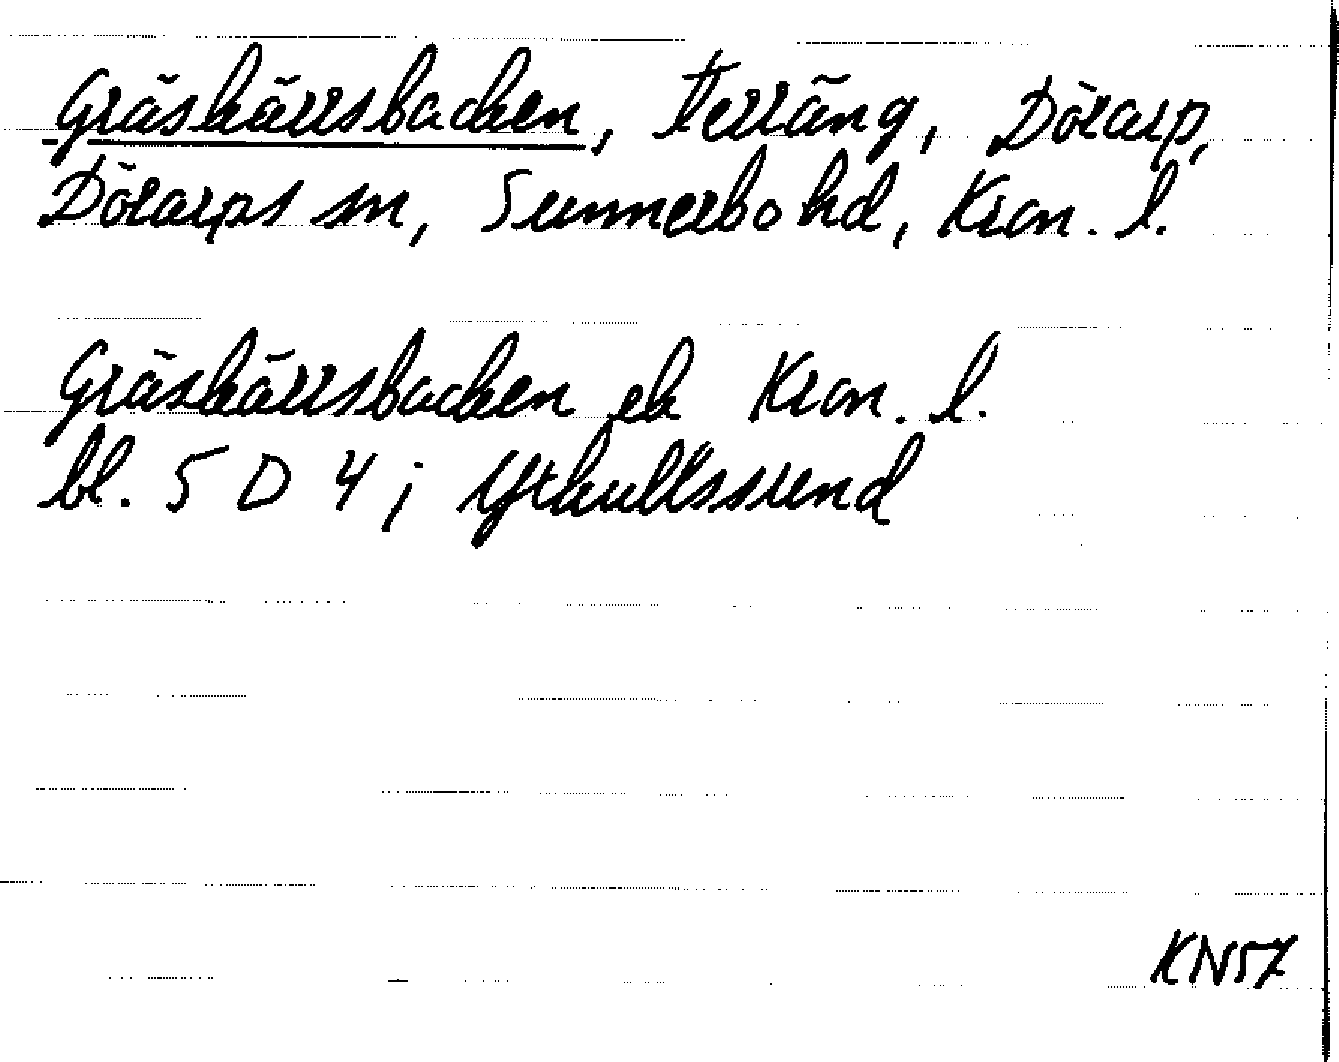 Gräskärrsbacken, Terräng, Dörarp,
Dörarps sn, Sunnerbo hd, Kron. l.
Gräskärrsbacken ek Kron. l.
bl. 5 D 4; Ythultssund
KN57